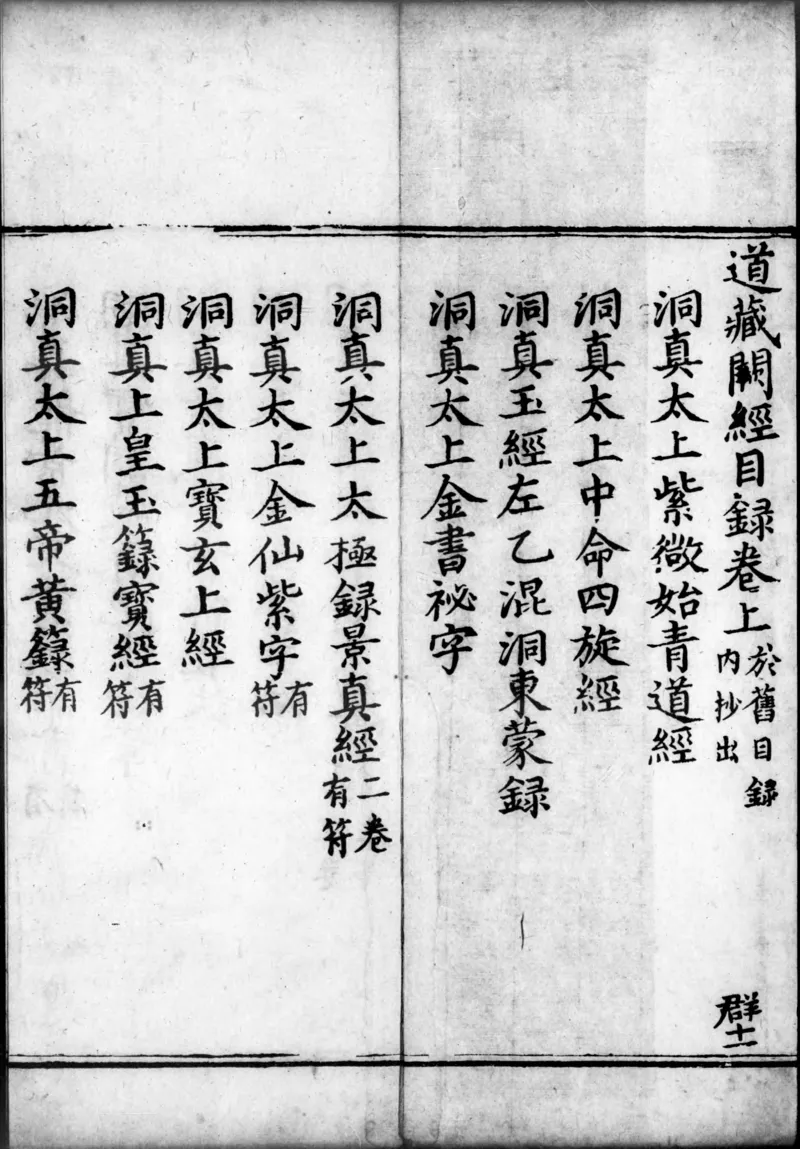 道藏闕經目録卷上 於舊目録内抄出 群十一
洞真太上紫微始青道經
洞真太上中命四旋經
洞真玉經左乙混洞東蒙録
洞真太上金書祕字
洞真太上太極録景真經 二卷有符
洞真太上金仙紫字 有符
洞真太上寶玄上經
洞真上皇玉籙寶經 有符
洞真太上五帝黄籙 有符